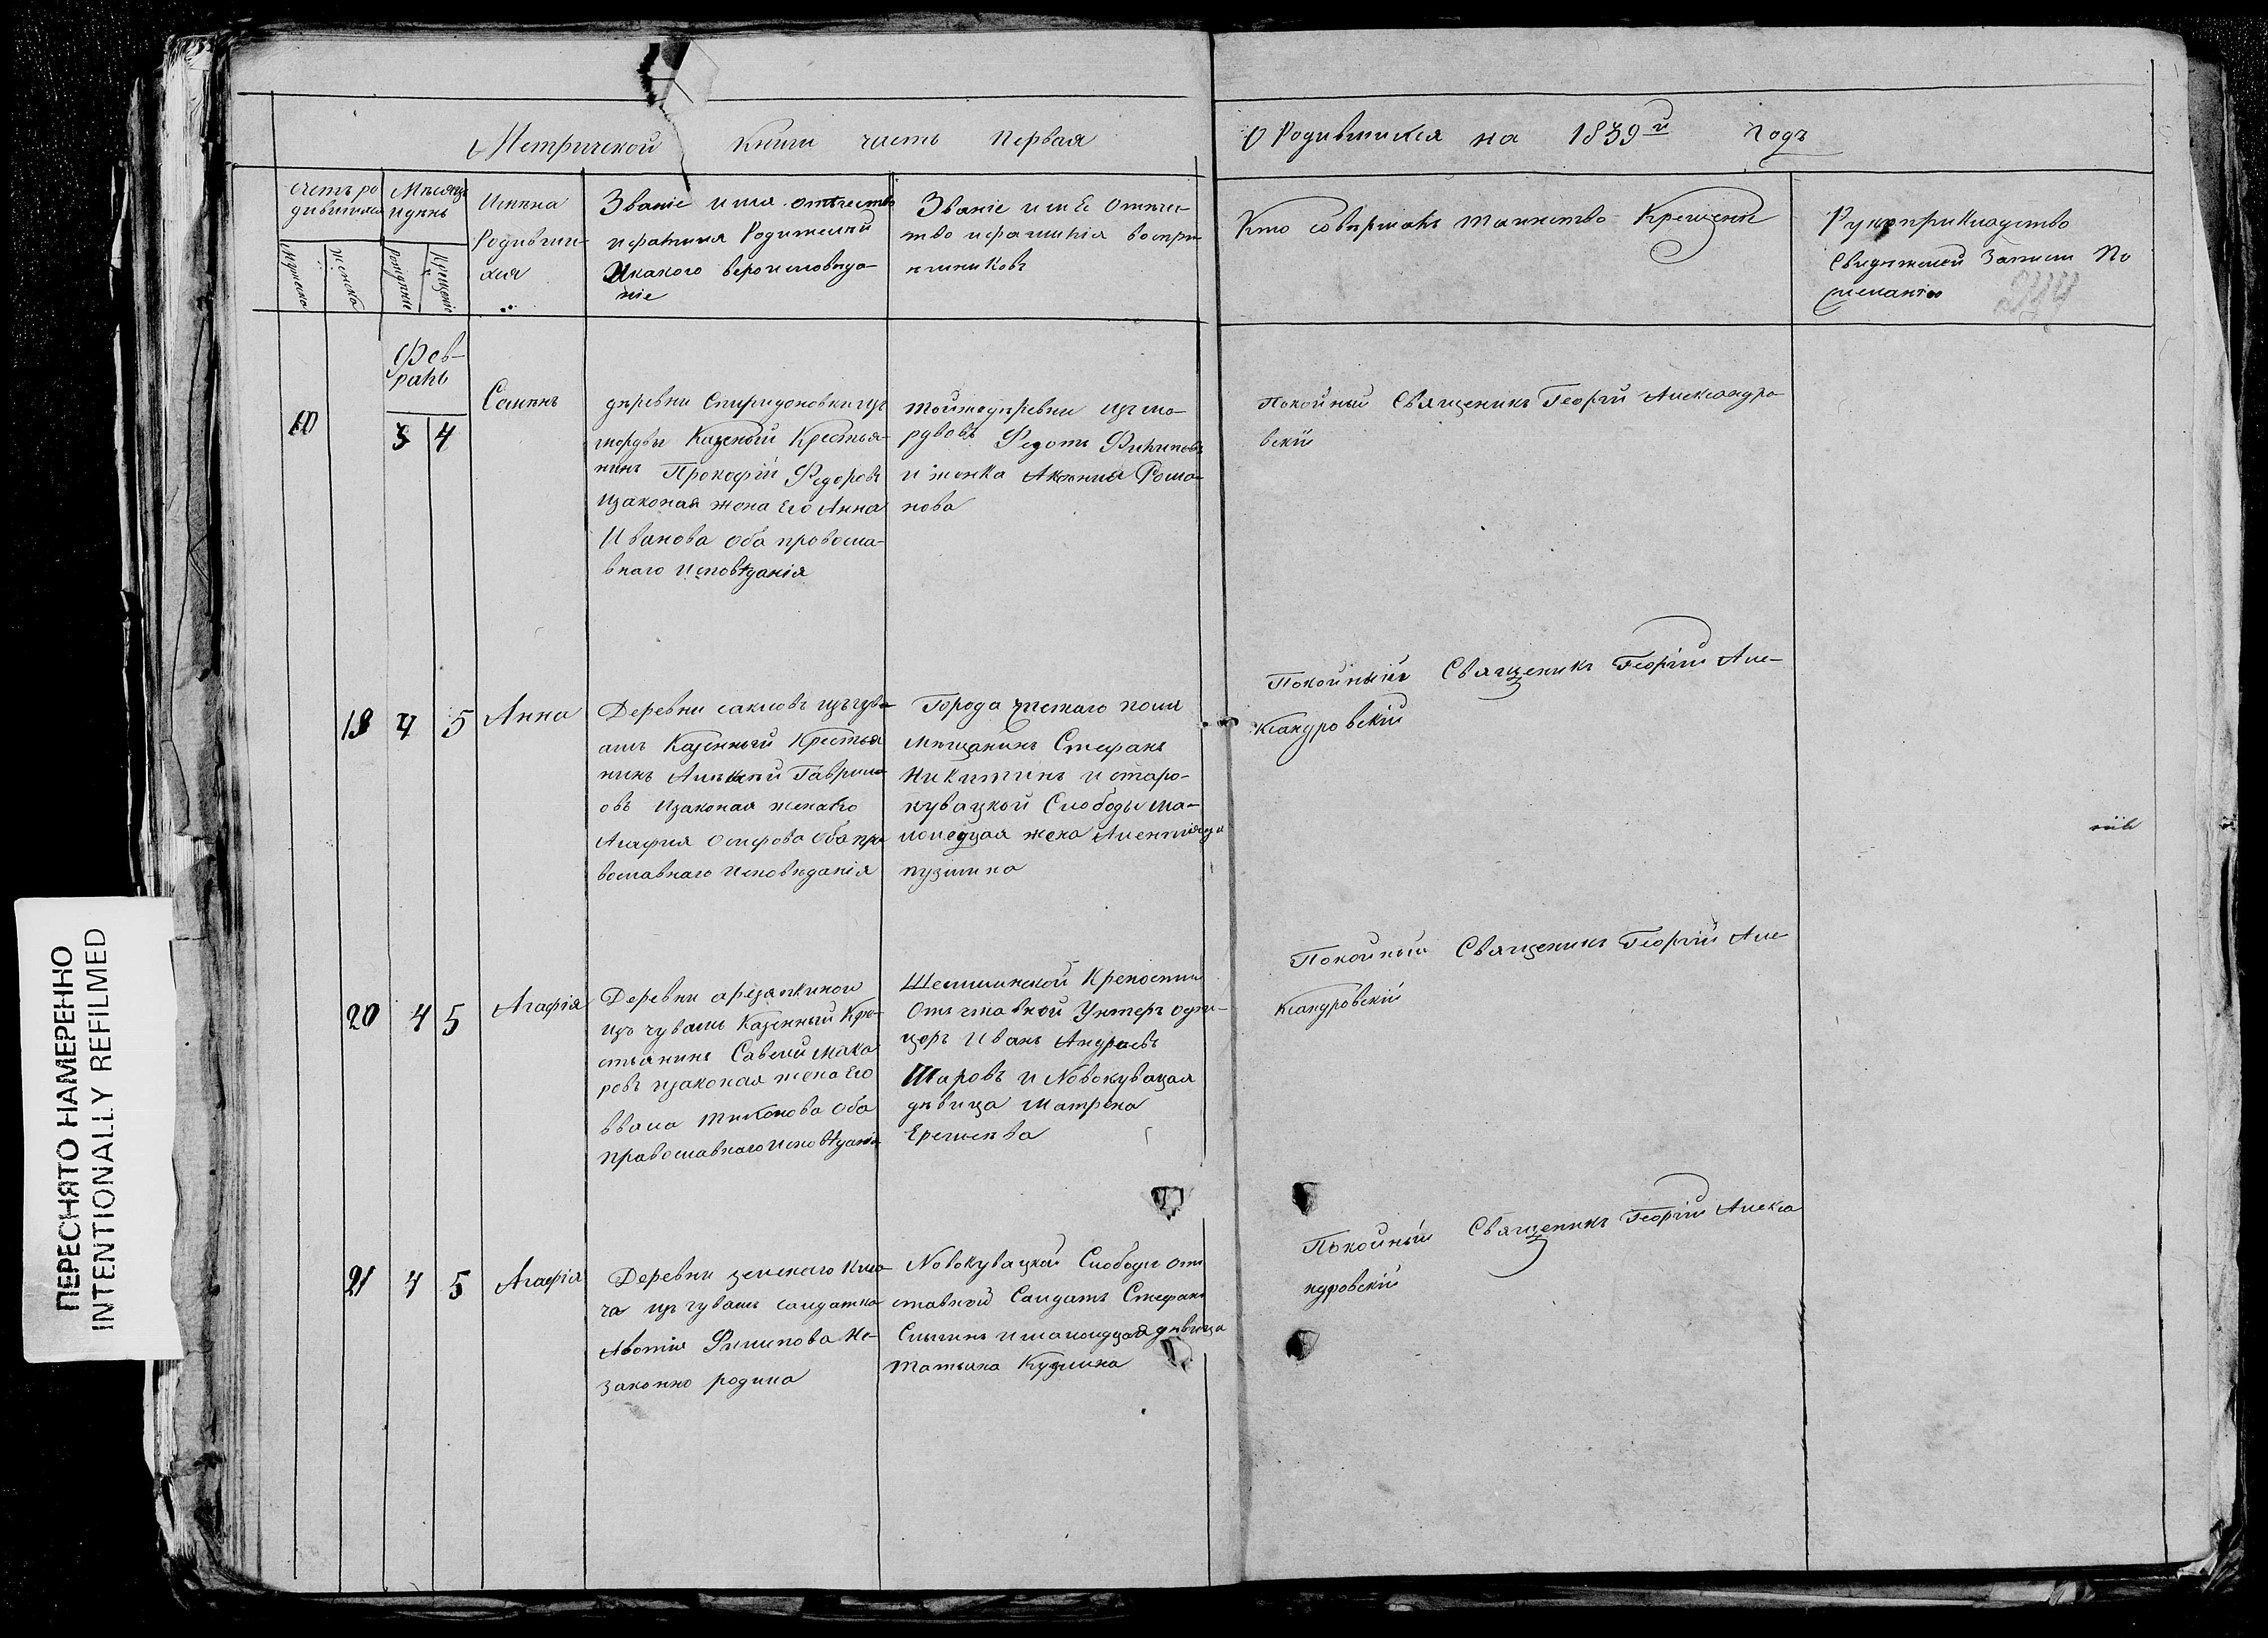 Метрической Книги часть Первая
О Родившихся на 1839й Годъ
Счетъ ро
дившихся
Мужеска
Женска
Мѣсяцъ
и день
Рожденіе
Крещеніе
Имена
Родивши
хся
Званіе имя отчество
и фамилія Родителей
И какого вероисповѣда
ніе
Званіе имя Отече
тво и фамилія воспри
емниковъ
Кто совершалъ таинство Крещенія
Рукоприкладство
Свидѣтелей Записи По
желанію
244
Фев-
раль
10
3 4
Семенъ
деревни Спиридоновки изъ
мордвы Казеный Крестья-
нинъ Прокофій Федоровъ
и законая жена Его Анна
Иванова Оба правосла-
внаго исповѣданія
той же деревни изъ мо-
рдвовъ Федотъ Филиповъ
и женка Аксинія Рома-
нова
Покойный Священикъ Георгій Александро
вскій
19 4 5
Анна
Деревни сакловъ изъ чув
ашъ Казенный Крестья
нинъ Алексѣй Гаврило
овъ и законая жена его
Агафия Осифова Оба пра
вославнаго исповѣданія
Города чистаго поля
Мещанинъ Стефанъ
Никитинъ и старо-
кувацкой Слободы ма-
лолецкая жена
кузмина
Покойный Священикъ Георгій Але-
ксандровскій
20 4 5
Агафія
Деревни
изъ чувашъ Казенный Кре-
стьянинъ Савелий Мака
ровъ и законая жена Его
Тихонова Оба
православнаго исповѣданія
Шешминской Крепости
Отставной Унтеръ офи-
церъ Иванъ Андреевъ
Шаровъ и Новокувацкая
дѣвица Матрена
Еремеева
Покойный Священикъ Георгій Але-
ксандровскій
21 4 5
Агафія
Деревни земскаго Клю
ча изъ чувашъ салдатка
Авотія Филипова Не-
законно родила
Новокувацкой Слободы От
ставной Салдатъ Стефанъ
дѣвица
Татьяна Кузмина
Покойный Священикъ Георгій Алекса
ндровскій
ПЕРЕСНЯТО НАМЕРЕННО
INTENTIONALLY REFILMED